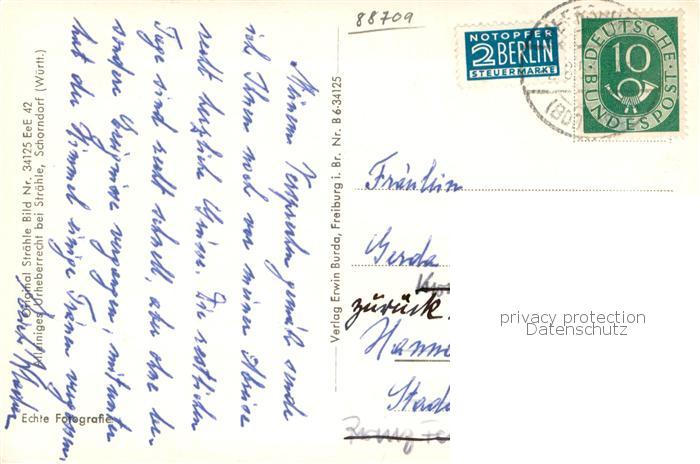 88709
NOTOPFER
2 BERLIN
STEUERMARKE
DEUTSCHE
10
BUNDESPOST
Meinem Versprechen gemäß sende
ich Ihnen noch vor meiner Abreise
recht herzliche Grüsse. Die restlichen
Tage sind recht schnell, aber ohne be-
sondere Ereignisse vergangen, mitunter
hat der Himmel einige Tränen vergossen.
Original Strähle Bild Nr. 34125 EeE 42
Alleiniges Urheberrecht bei Strähle, Schorndorf (Württ.)
Echte Fotografie
Verlag Erwin Burda, Freiburg i. Br. Nr. B 6-34125
Fräulein
Gerda
zurück.
Hanno
Stad
privacy protection
Datenschutz